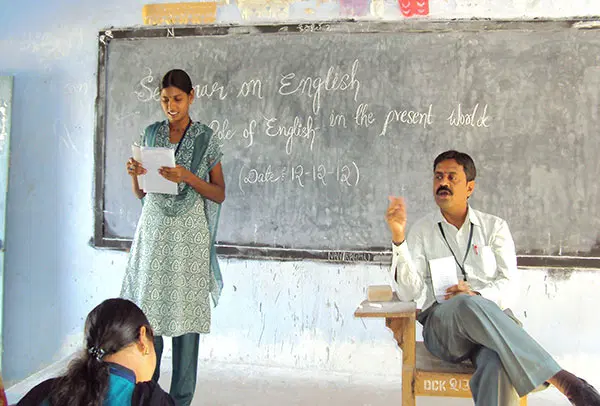 Seminar on English
Role of English in the present World
(Date: 12-12-12)
DCK